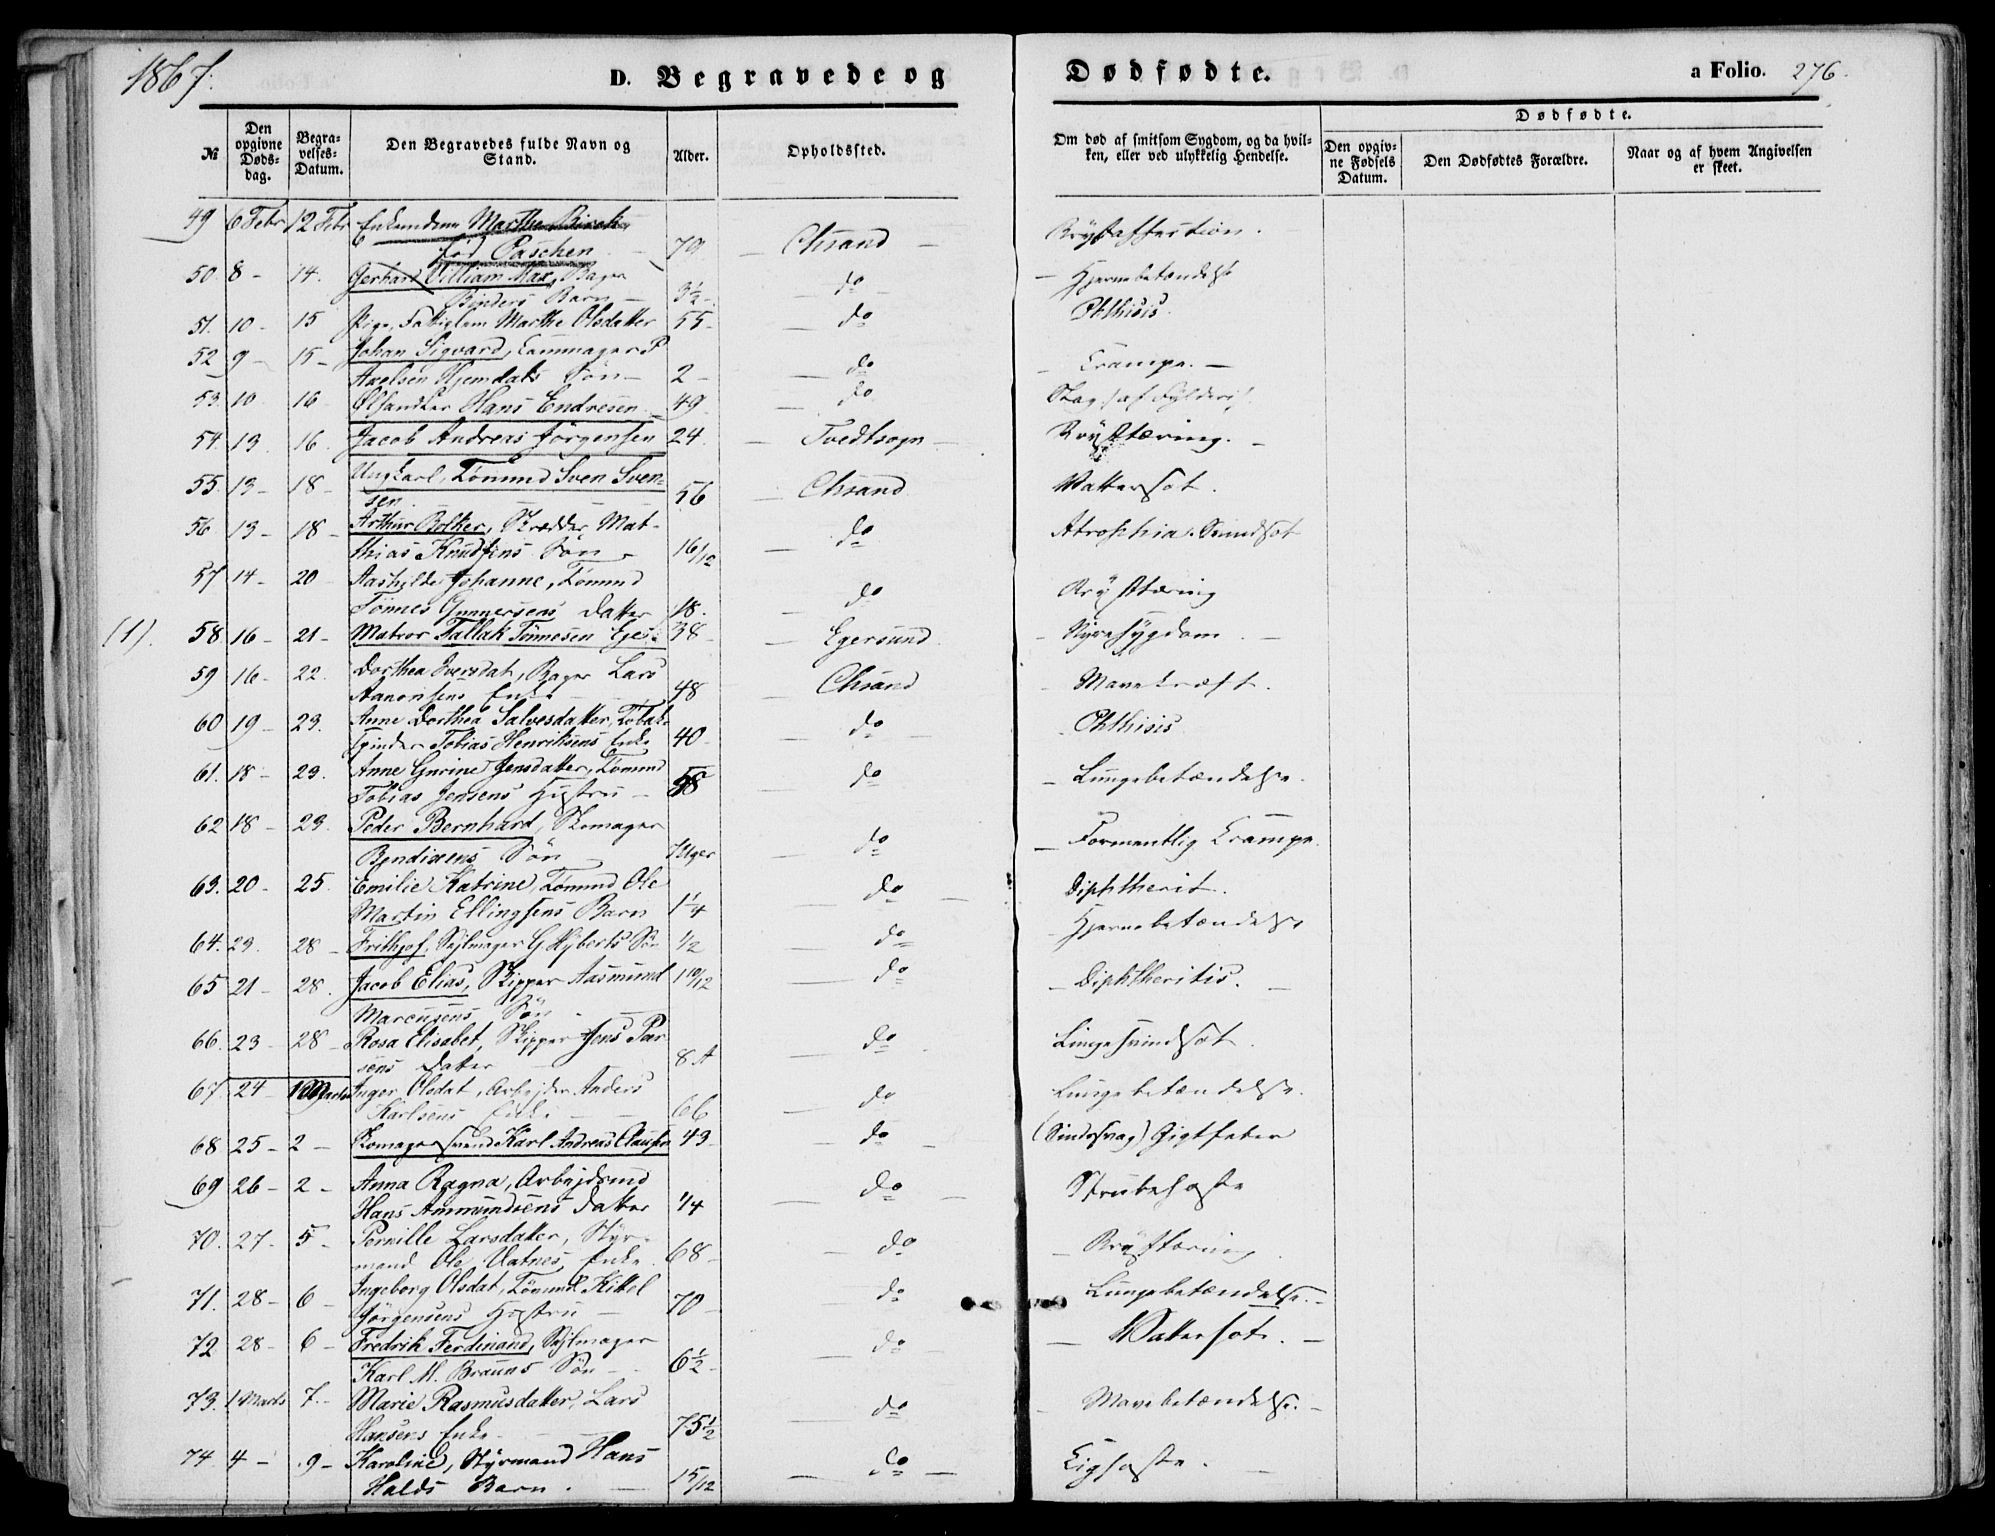 1867.
D. Begravede og Dødfødte.
a Folio. 276.
№
Den opgivne Døds-dag.
Begra-velses-Datum.
Den Begravedes fulde Navn og Stand.
Alder.
Opholdssted.
Om død af smitsom Sygdom, og da hvil-ken, eller ved ulykkelig Hendelse.
Dødfødte.
Den opgiv-ne Fødsels Datum.
Den Dødfødtes Forældre.
Naar og af hvem Angivelsen er skeet.
49 6 Febr 12 Febr Enkemadame Marthe
fød Paschen 79 Chsand
50. 8 - 14. Gerhard William Max, Bager
Barn 3½ do Hjernebetændelse
51. 10 - 15 Pige, Fattiglem Marthe Olsdatter 55 do Phthisis.
52 9 - 15 - Johan Sigvard, P
Axelsen Hjemdals Søn 2 - do Krampe. -
53. 10 16 Hans Endresen 49 do Slag
54. 13 16 Jacob Andreas Jörgensen 24. Tvedtsogn Brysttæring. -
55. 13 - 18 - Ungkarl, Tömmd Sven Sven-
sen 56 Chsand Vattersot.
56 13 - 18 - Arthur, Skrædder Mat-
thias Knudsens Søn - 16/12 do Atrophia. Svindsot
57 14 - 20 Aashilde Johanne, Tömmd
Tönnes Gunnersens Datter 18. do Brysttæring
(1). 58 16 - 21 - Matros Tallak Tönnesen 38 - Egersund Nyresygdom. -
59 16 - 22. Dorthea Iversdat, Bager Lars
Aanonsens Enke 48 Chsand Mavekræft.
60 19 - 23. Anne Dorthea Salvesdatter, Tobak-
spinder Tobias Henriksens Enke 40 - do Phthisis
61. 18 - 23. Anne Gurine Jensdatter, Tömmd
Tobias Jensens Hustru - 58 do - Lungebetændelse.
62 18 - 23. Peder Bernhard, Skomager
Bendixens Søn 7 Uger do - Formentlig Krampe.
63. 20 - 25. Emilie Katrine, Tömmd Ole
Martin Ellingsens Barn 1¼ do Diphtherit.
64. 23. 28 - Frithjof, Sejlmager G. Hjberts Søn ½ do Hjernebetændelse
65 21 - 28. Jacob Elias, Skipper Aasmund
Marcusens Søn 1 10/12 do - Diphtheritis. -
66. 23 - 28 - Rosa Elisabet, Skipper Jens Paer
sens Datter 8 A do Lungesvindsot.
67. 24 - 1 Marts Inger Olsdat, Arbejder Anders
Karlsens Enke 66 do Lungebetændelse.
68 25 - 2 - Skomagersvend Karl Andreas Clausen 43 - do (Sindssvag) Gigtfeber
69 26 - 2 - Anna Ragna, Arbejdsmd
Hans Ammundsens Datter ¼ do Strubehoste
70. 27 - 5 - Pernille Larsdatter, Styr-
mand Ole Vatnes Enke. 68 - do - Brysttæring
71. 28 - 6 - Ingeborg Olsdat, Tömmd Kittel
Jörgensens Hustru - 70 - do Lungebetændelse. -
72 28 - 6 - Fredrik Ferdinand, Sejlmager
Karl M. Brauns Søn - 6½ - do Vattersot. -
73. 1 Marts 7. - Marie Rasmusdatter, Lars
Hansens Enke - 75½ do Mavebetændelse. -
74 4 - 9 - Karoline, Styrmand Hans
Halds Barn. 15/12 do Kighoste.